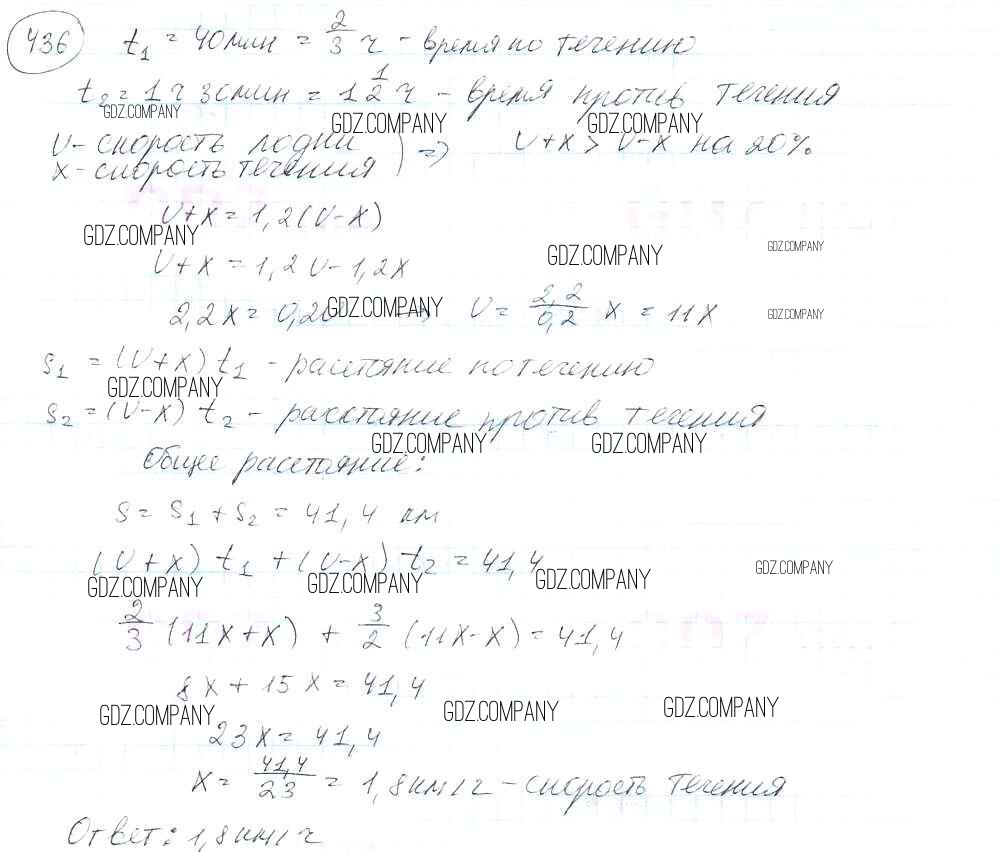 436
t₁ = 40 мин = 2/3 ч - время по течению
t₂ = 1 ч 30 мин = 1 1/2 ч - время против течения
GDZ.COMPANY
GDZ.COMPANY GDZ.COMPANY
v - скорость лодки
x - скорость течения } => v+x > v-x на 20%.
v+x = 1,2(v-x)
GDZ.COMPANY
GDZ.COMPANY GDZ.COMPANY
v+x = 1,2v - 1,2x
2,2x = 0,2v => v = 2,2/0,2 x = 11x
GDZ.COMPANY GDZ.COMPANY
s₁ = (v+x) t₁ - расстояние по течению
GDZ.COMPANY
s₂ = (v-x) t₂ - расстояние против течения
GDZ.COMPANY GDZ.COMPANY
Общее расстояние:
s = s₁ + s₂ = 41,4 км
(v+x) t₁ + (v-x) t₂ = 41,4
GDZ.COMPANY GDZ.COMPANY GDZ.COMPANY GDZ.COMPANY
2/3 (11x+x) + 3/2 (11x-x) = 41,4
8x + 15x = 41,4
GDZ.COMPANY GDZ.COMPANY GDZ.COMPANY
23x = 41,4
x = 41,4/23 = 1,8 км/ч - скорость течения
Ответ: 1,8 км/ч